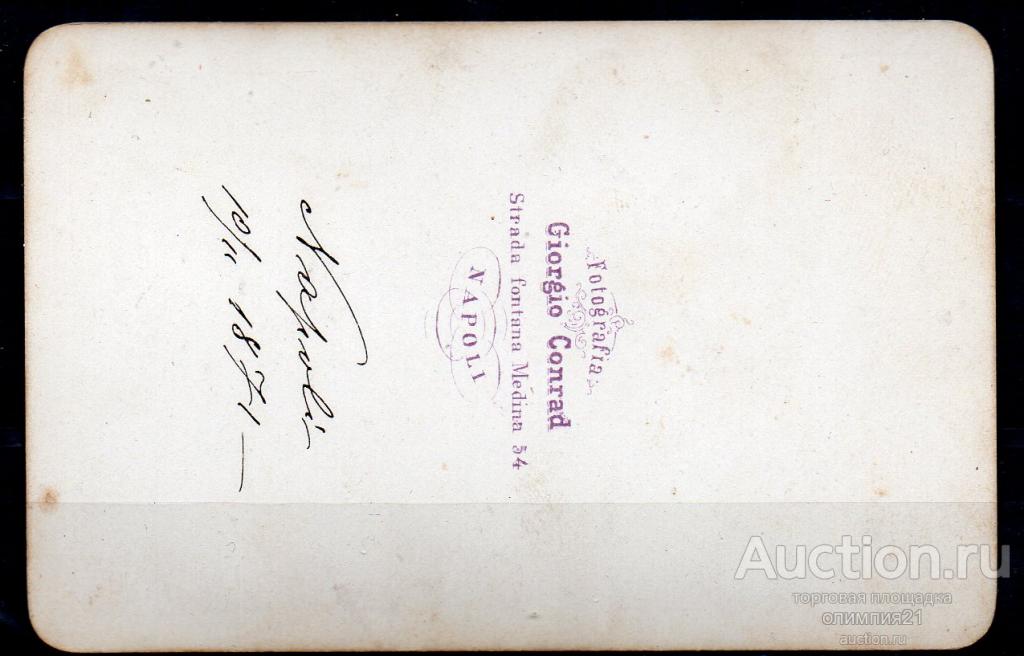 Fotografia
Giorgio Conrad
Strada fontana Medina 34
NAPOLI
Napoli
10/11 1871 —
Auction.ru
торговая площадка
олимпия21
auction.ru